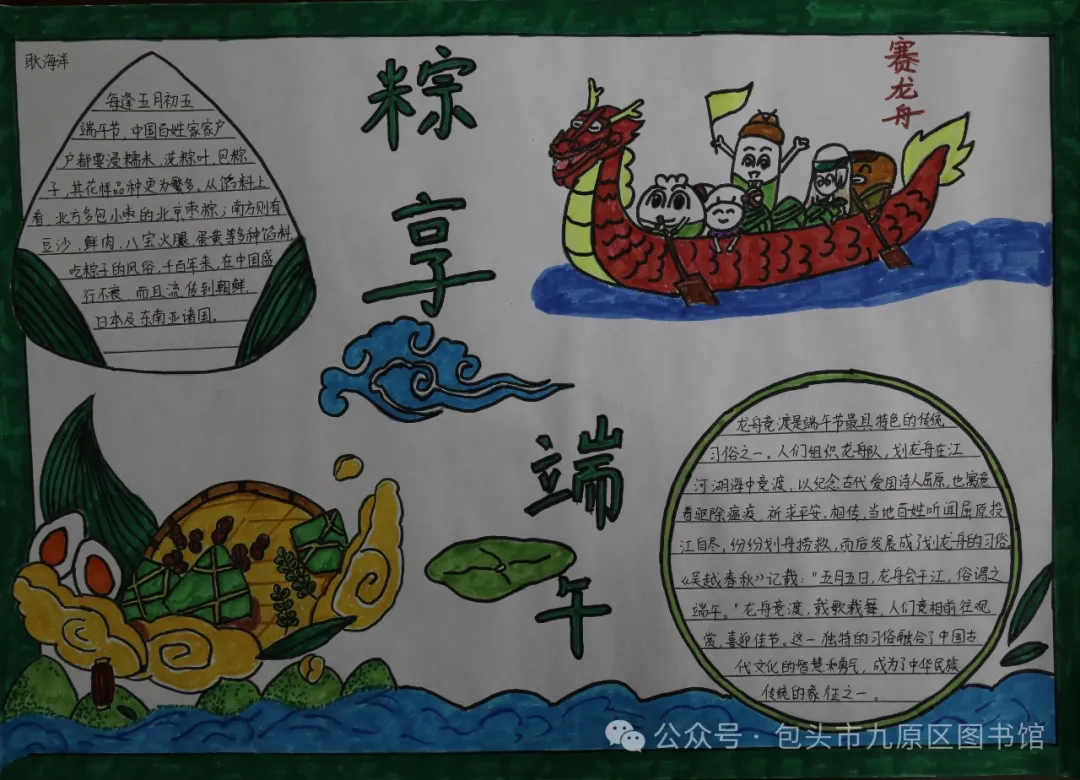 耿海洋
每逢五月初五
端午节,中国百姓家家户
户都要浸糯米、洗粽叶、包粽
子,其花样品种更为繁多。从馅料上
看,北方多包小枣的北京枣粽;南方则有
豆沙、鲜肉、八宝火腿、蛋黄等多种馅料
吃粽子的风俗,千百年来,在中国盛
行不衰,而且流传到朝鲜、
日本及东南亚诸国。
粽
享
端
午
赛龙舟
龙舟竞渡是端午节最具特色的传统
习俗之一。人们组织龙舟队,划龙舟在江
河湖海中竞渡,以纪念古代爱国诗人屈原,也寓意
着驱除瘟疫、祈求平安,相传,当地百姓听闻屈原投
江自尽,纷纷划舟捞救,而后发展成了划龙舟的习俗
《吴越春秋》记载:"五月五日,龙舟会于江,俗谓之
端午。"龙舟竞渡,载歌载舞,人们竞相前往观
赏,喜迎佳节。这一独特的习俗融合了中国古
代文化的智慧和勇气,成为了中华民族
传统的象征之一。
公众号·包头市九原区图书馆